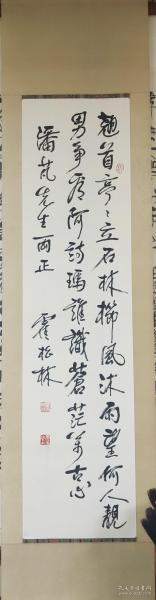 翘首亭〻立石林栉风沐雨望何人靓
男争唇阿诗玛谁识苍茫万古心
潘梵先生两正
霍松林